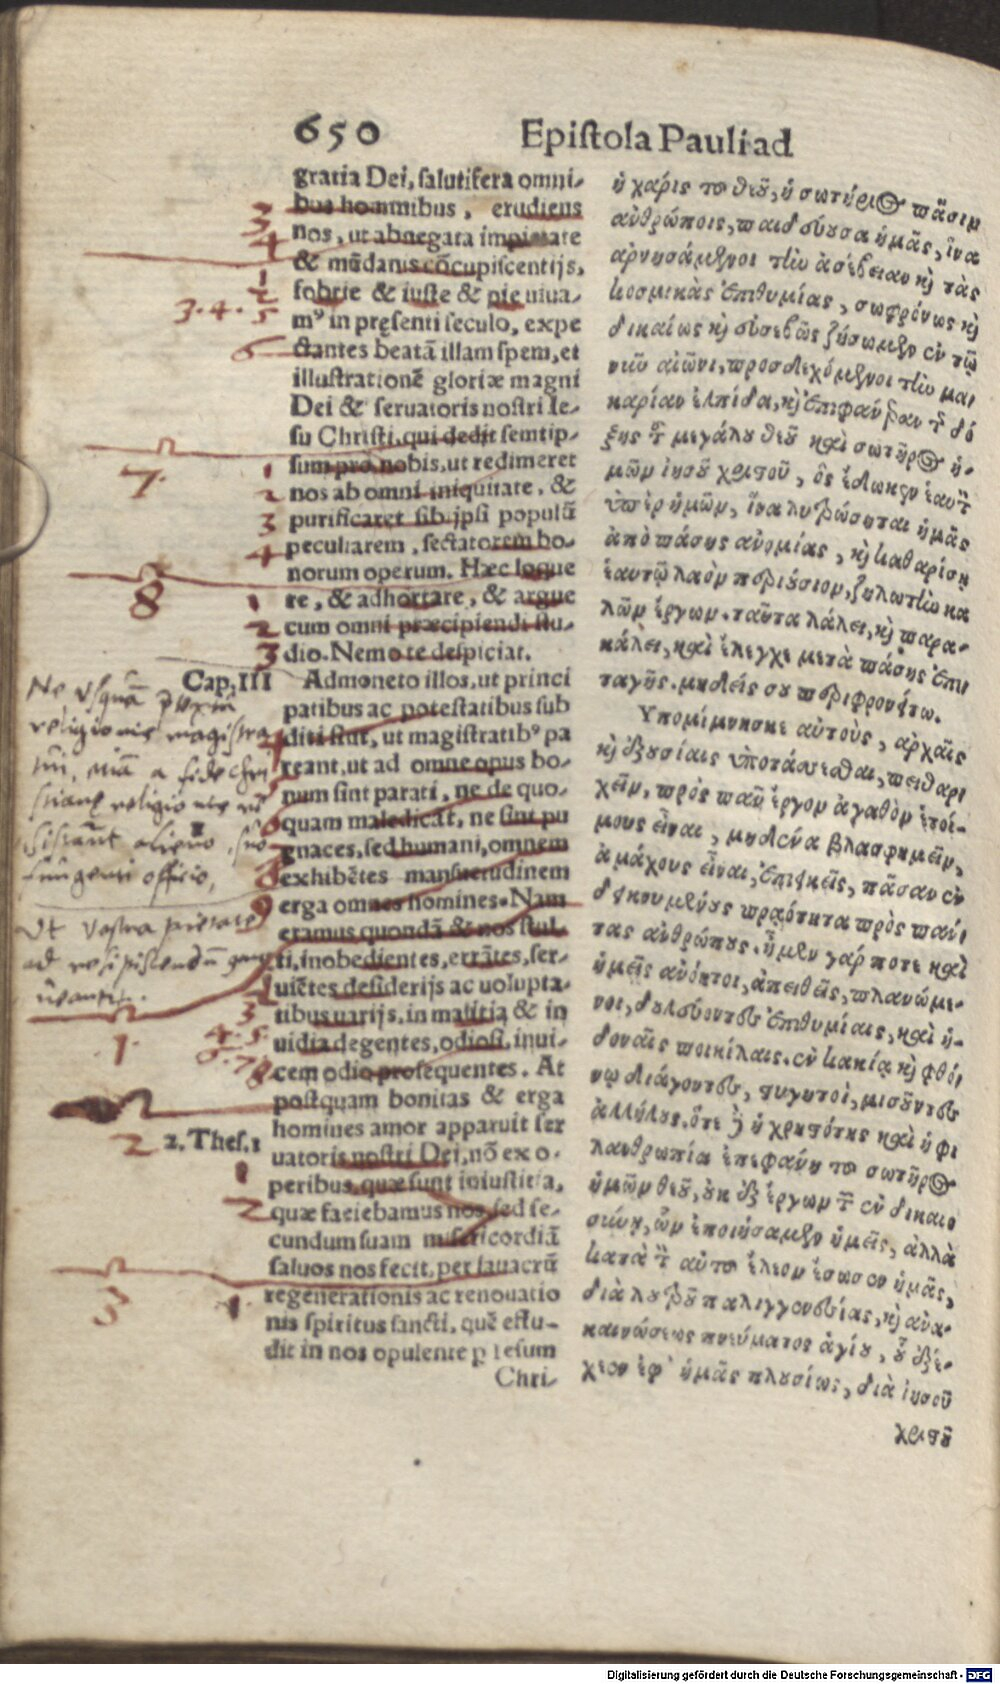 650 Epiſtola Pauli ad
gratia Dei, ſalutifera omni-
bus hominibus, erudiens
nos, ut abnegata impietate
& mūdanis cōcupiſcentijs,
ſobrie & iuſte & pie uiua-
mꝰ in pręſenti ſeculo, expe
ctantes beatā illam ſpem, et
illuſtrationē gloriæ magni
Dei & ſeruatoris noſtri Ie-
ſu Chriſti, qui dedit ſemtip-
ſum pro nobis, ut redimeret
nos ab omni iniquitate, &
purificaret ſibijpſi populū
peculiarem, ſectatorem bo-
norum operum. Hæc loque
re, & adhortare, & argue
cum omni præcipiendi ſtu-
dio. Nemo te deſpiciat.
Cap. III Admoneto illos, ut princi
patibus ac poteſtatibus ſub
diti ſint, ut magiſtratibꝰ pa
reant, ut ad omne opus bo-
num ſint parati, ne de quo-
quam maledicāt, ne ſint pu
gnaces, ſed humani, omnem
exhibētes manſuetudinem
erga omnes homines. Nam
eramus quondā & nos ſtul-
ti, inobedientes, errātes, ſer-
uiētes deſiderijs ac uolupta-
tibus uarijs, in malitia & in
uidia degentes, odioſi, inui-
cem odio proſequentes. At
poſtquam bonitas & erga
homines amor apparuit ſer
2. Theſ. 1
uatoris noſtri Dei, nō ex o-
peribus, quæ ſunt in iuſtitia,
quæ faciebamus nos, ſed ſe-
cundum ſuam miſericordiā
ſaluos nos fecit, per lauacrū
regenerationis ac renouatio
nis ſpiritus ſancti, quē effu-
dit in nos opulente p Ieſum
Chri-
ἡ χάρις τοῦ θεοῦ, ἡ σωτήριος πᾶσιν
ἀνθρώποις, παιδεύουσα ἡμᾶς, ἵνα
ἀρνησάμενοι τὴν ἀσέβειαν καὶ τὰς
κοσμικὰς ἐπιθυμίας, σωφρόνως καὶ
δικαίως καὶ εὐσεβῶς ζήσωμεν ἐν τῷ
νῦν αἰῶνι, προσδεχόμενοι τὴν μα
καρίαν ἐλπίδα, καὶ ἐπιφάνειαν τῆς δό
ξης τοῦ μεγάλου θεοῦ καὶ σωτῆρος ἡ-
μῶν ἰησοῦ χριστοῦ, ὃς ἔδωκεν ἑαυτὸν
ὑπὲρ ἡμῶν, ἵνα λυτρώσηται ἡμᾶς
ἀπὸ πάσης ἀνομίας, καὶ καθαρίσῃ
ἑαυτῷ λαὸν περιούσιον, ζηλωτὴν κα
λῶν ἔργων. ταῦτα λάλει, καὶ παρα-
κάλει, καὶ ἔλεγχε μετὰ πάσης ἐπι
ταγῆς. μηδείς σου περιφρονείτω.
Υπομίμνησκε αὐτοὺς, ἀρχαῖς
καὶ ἐξουσίαις ὑποτάσσεσθαι, πειθαρ
χεῖν, πρὸς πᾶν ἔργον ἀγαθὸν ἑτοί-
μους εἶναι, μηδένα βλασφημεῖν,
ἀμάχους εἶναι, ἐπιεικεῖς, πᾶσαν ἐν
δεικνυμένους πραότητα πρὸς πάν
τας ἀνθρώπους. ἦμεν γάρ ποτε καὶ
ἡμεῖς ἀνόητοι, ἀπειθεῖς, πλανώμε-
νοι, δουλεύοντες ἐπιθυμίαις, καὶ ἡ-
δοναῖς ποικίλαις, ἐν κακίᾳ καὶ φθό
νῳ διάγοντες, στυγητοὶ, μισοῦντες
ἀλλήλους. ὅτε δὲ ἡ χρηστότης καὶ ἡ φι
λανθρωπία ἐπεφάνη τοῦ σωτῆρος
ἡμῶν θεοῦ, οὐκ ἐξ ἔργων τῶν ἐν δικαιο
σύνῃ, ὧν ἐποιήσαμεν ἡμεῖς, ἀλλὰ
κατὰ τὸν αὐτοῦ ἔλεον ἔσωσεν ἡμᾶς,
διὰ λουτροῦ παλιγγενεσίας, καὶ ἀνα-
καινώσεως πνεύματος ἁγίου, οὗ ἐξέ-
χεεν ἐφ' ἡμᾶς πλουσίως, διὰ ἰησοῦ
χριστοῦ
Digitalisierung gefördert durch die Deutsche Forschungsgemeinschaft - DFG